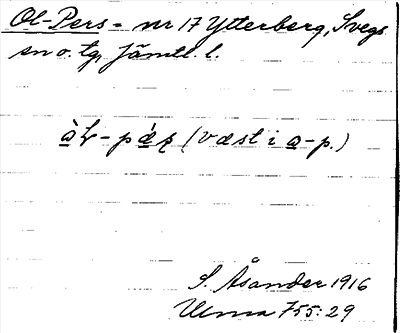 Ol-Pers = nr 17 Ytterberg, Svegs
sn o. tg, Jämtl. l.
(væst i a-p.)
S. Åsander 1916
Ulma 755:29